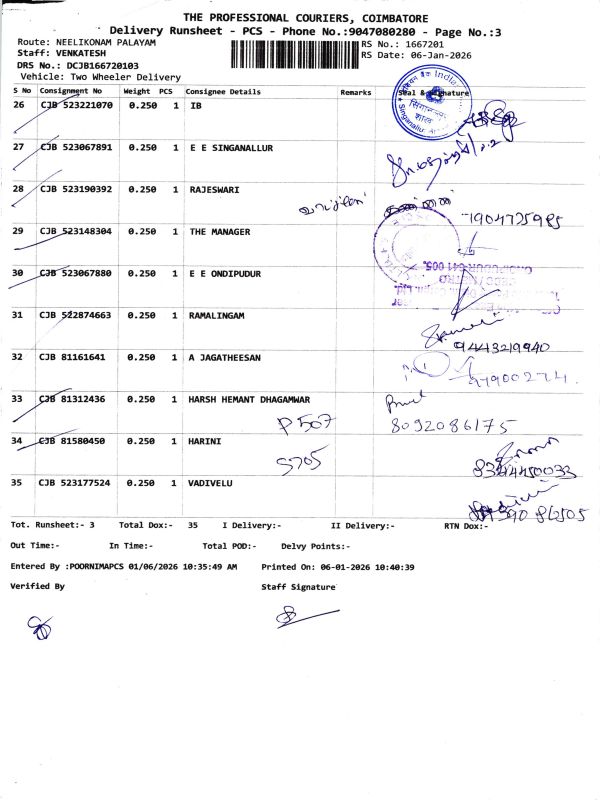 THE PROFESSIONAL COURIERS, COIMBATORE
Delivery Runsheet - PCS - Phone No.:9047080280 - Page No.:3
Route: NEELIKONAM PALAYAM
RS No.: 1667201
Staff: VENKATESH
RS Date: 06-Jan-2026
DRS No.: DCJB166720103
Vehicle: Two Wheeler Delivery
S No Consignment No Weight PCS Consignee Details Remarks Seal & Signature
26 CJB 523221070 0.250 1 IB
27 CJB 523067891 0.250 1 E E SINGANALLUR
28 CJB 523190392 0.250 1 RAJESWARI
7904725985
29 CJB 523148304 0.250 1 THE MANAGER
30 CJB 523067880 0.250 1 E E ONDIPUDUR
31 CJB 522874663 0.250 1 RAMALINGAM
9443219940
32 CJB 81161641 0.250 1 A JAGATHEESAN
33 CJB 81312436 0.250 1 HARSH HEMANT DHAGAMWAR
P507 8092086175
34 CJB 81580450 0.250 1 HARINI
S705
35 CJB 523177524 0.250 1 VADIVELU
Tot. Runsheet:- 3 Total Dox:- 35 I Delivery:- II Delivery:- RTN Dox:-
Out Time:- In Time:- Total POD:- Delvy Points:-
Entered By :POORNIMAPCS 01/06/2026 10:35:49 AM Printed On: 06-01-2026 10:40:39
Verified By Staff Signature